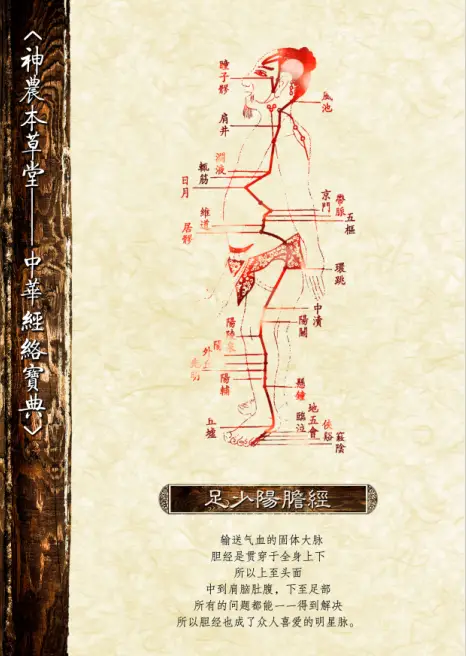 <神農本草堂——中華經絡寶典>
瞳子髎
風池
肩井
淵液
輒筋
日月
京門
帶脈
五樞
維道
居髎
環跳
中瀆
陽關
陽陵泉
陽
外丘
光明
陽輔
懸鐘
丘墟
地五會
臨泣
俠谿
竅陰
足少陽膽經
输送气血的固体大脉
胆经是贯穿于全身上下
所以上至头面
中到肩脑肚腹，下至足部
所有的问题都能一一得到解决
所以胆经也成了众人喜爱的明星脉。